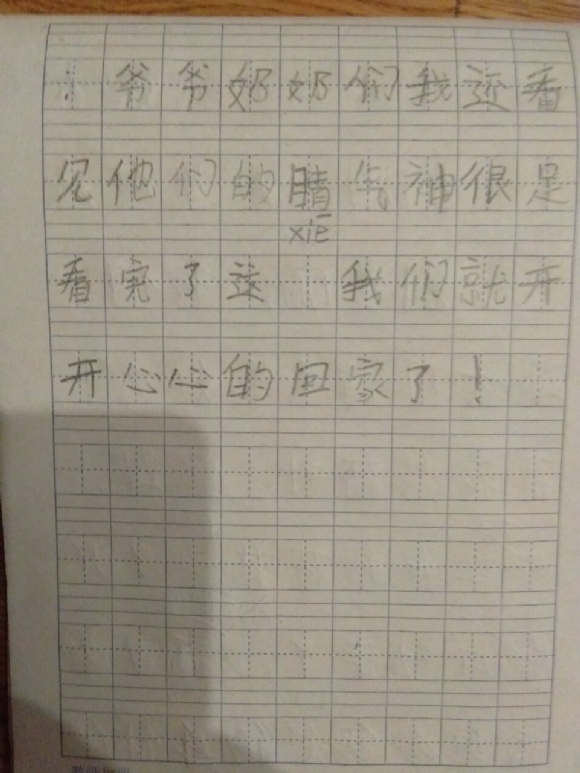 ：爷爷奶奶们我还看
见他们的睛气神很是
看完了这 我们就开
xiē
开心心的回家了！